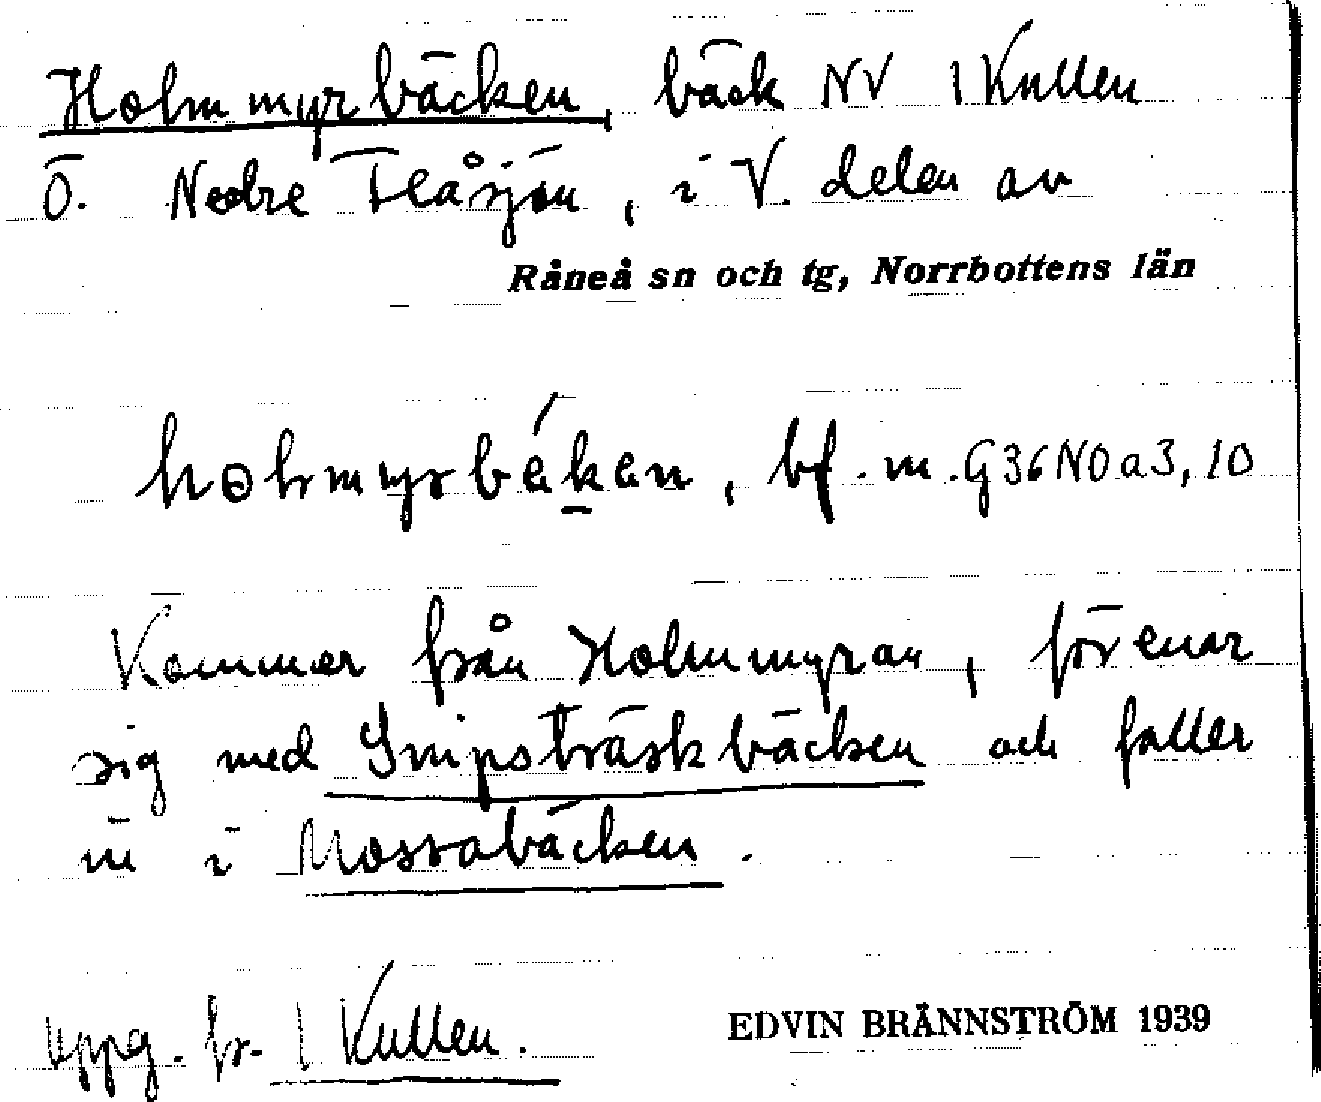 Holmmyrbäcken, bäck NV 1 Kullen
Ö. Nedre Flåsjön, i V. delen av
Råneå sn och tg, Norrbottens län
holmmyrbékan, bf. m. G36NOa3,10
Kommer från Holmmyran, förenar
sig med Snipsträskbäcken och faller
in i Mossabäcken.
uppg. fr. 1 Kullen.
EDVIN BRÄNNSTRÖM 1939